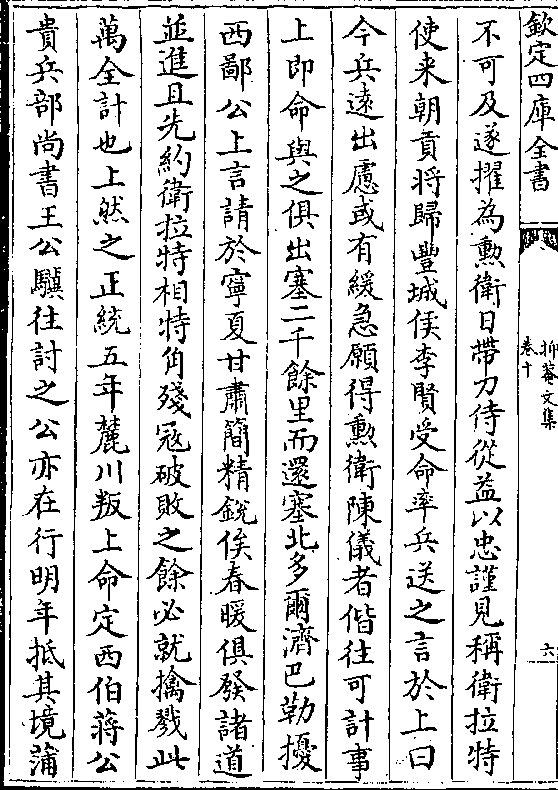 欽定四庫全書
抑菴文集
卷十
六
不可及遂擢為勲衛日帶刀侍從益以忠謹見稱衛拉特
使来朝貢将歸豐城侯李賢受命率兵送之言於上曰
今兵遠出慮或有緩急願得勲衛陳儀者偕往可計事
上即命與之俱出塞二千餘里而還塞北多爾濟巴勒擾
西鄙公上言請於寧夏甘肅簡精銳俟春暖俱發諸道
並進且先約衛拉特相特角殘宼破敗之餘必就擒戮此
萬全計也上然之正統五年麓川叛上命定西伯蔣公
貴兵部尚書王公驥往討之公亦在行明年抵其境蒲